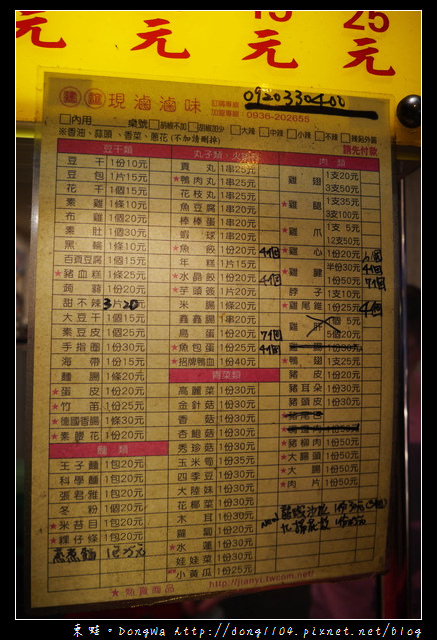 元 元 10元 25元
現滷滷味
訂購專線
加盟專線：0936-202655
0920330400
□內用 桌號 □胡椒不加 □胡椒加少 □大辣 □中辣 □小辣 □不辣
※香油、蒜頭、香菜、蔥花(不加請刪掉)
請先付款
豆干類
豆干 1份10元
豆包 1片15元
花干 1個15元
素雞 1條10元
布雞 1個20元
素肚 1個30元
黑輪 1條10元
百頁豆腐 1個15元
★豬血糕 1條25元
蒟蒻 1份20元
甜不辣 3片20
大豆干 1個15元
素豆皮 1個25元
手指圈 1份30元
海帶 1份15元
麵腸 1條20元
★蛋皮 1份20元
★竹笛 1份25元
★德國香腸 1條30元
★素腰花 1份20元
麵類
王子麵 1包20元
科學麵 1包20元
張君雅 1包20元
冬粉 1個20元
★米苔目 1包20元
★粿仔條 1包20元
丸子類
貢丸 1串25元
★鴨肉丸 1串25元
花枝丸 1串25元
魚豆腐 1串20元
棒棒蛋 1串20元
蝦球 1串20元
★魚餃 1份20元 4個
年糕 1片15元
★水晶餃 1份20元 4個
★芋頭簽 1片20元
米腸 1條20元
鑫鑫腸 1串20元
鳥蛋 1份20元 7個
★魚包蛋 1份25元 4個
★招牌鴨血 1份40元
青菜類
高麗菜 1份30元
金針菇 1份30元
香菇 1份30元
杏鮑菇 1份30元
秀珍菇 1份30元
玉米筍 1份35元
四季豆 1份30元
大陸妹 1份30元
花椰菜 1份30元
木耳 1份30元
蘿蔔 1份20元
★水蓮 1份30元
娃娃菜 1份30元
小黃瓜 1份25元
肉類
雞翅 1支20元
3支50元
★雞腿 1支35元
3支100元
★雞爪 1支5元
12支50元
★雞心 1份20元
★雞腱 半份30元
1份50元
脖子 1支10元
★雞尾椎 1份25元 4個
★鴨翅 1支25元
豬皮 1份20元
豬耳朵 1份30元
豬頭皮 1份30元
★豬柳肉 1份50元
★大腸頭 1份50元
★大腸 1份50元
★肉片 1份50元
★熱賣商品
http://jianyi.tw.com.net/
東蛙。DongWa http://dong1104.pixnet.net/blog